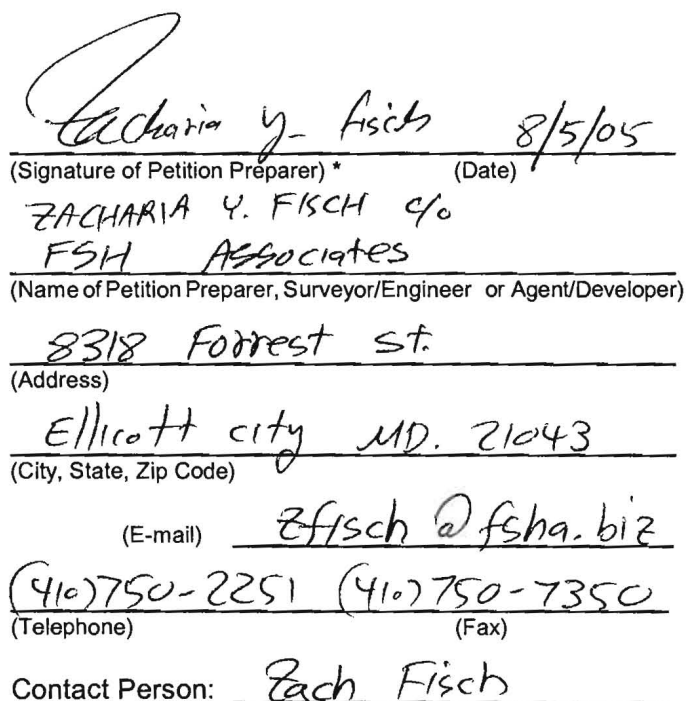 Zacharia Y. Fisch 8/5/05
(Signature of Petition Preparer) * (Date)
ZACHARIA Y. FISCH c/o
FSH Associates
(Name of Petition Preparer, Surveyor/Engineer or Agent/Developer)
8318 Forrest St.
(Address)
Ellicott city MD. 21043
(City, State, Zip Code)
(E-mail) zfisch@fsha.biz
(410)750-2251 (410)750-7350
(Telephone) (Fax)
Contact Person: Zach Fisch